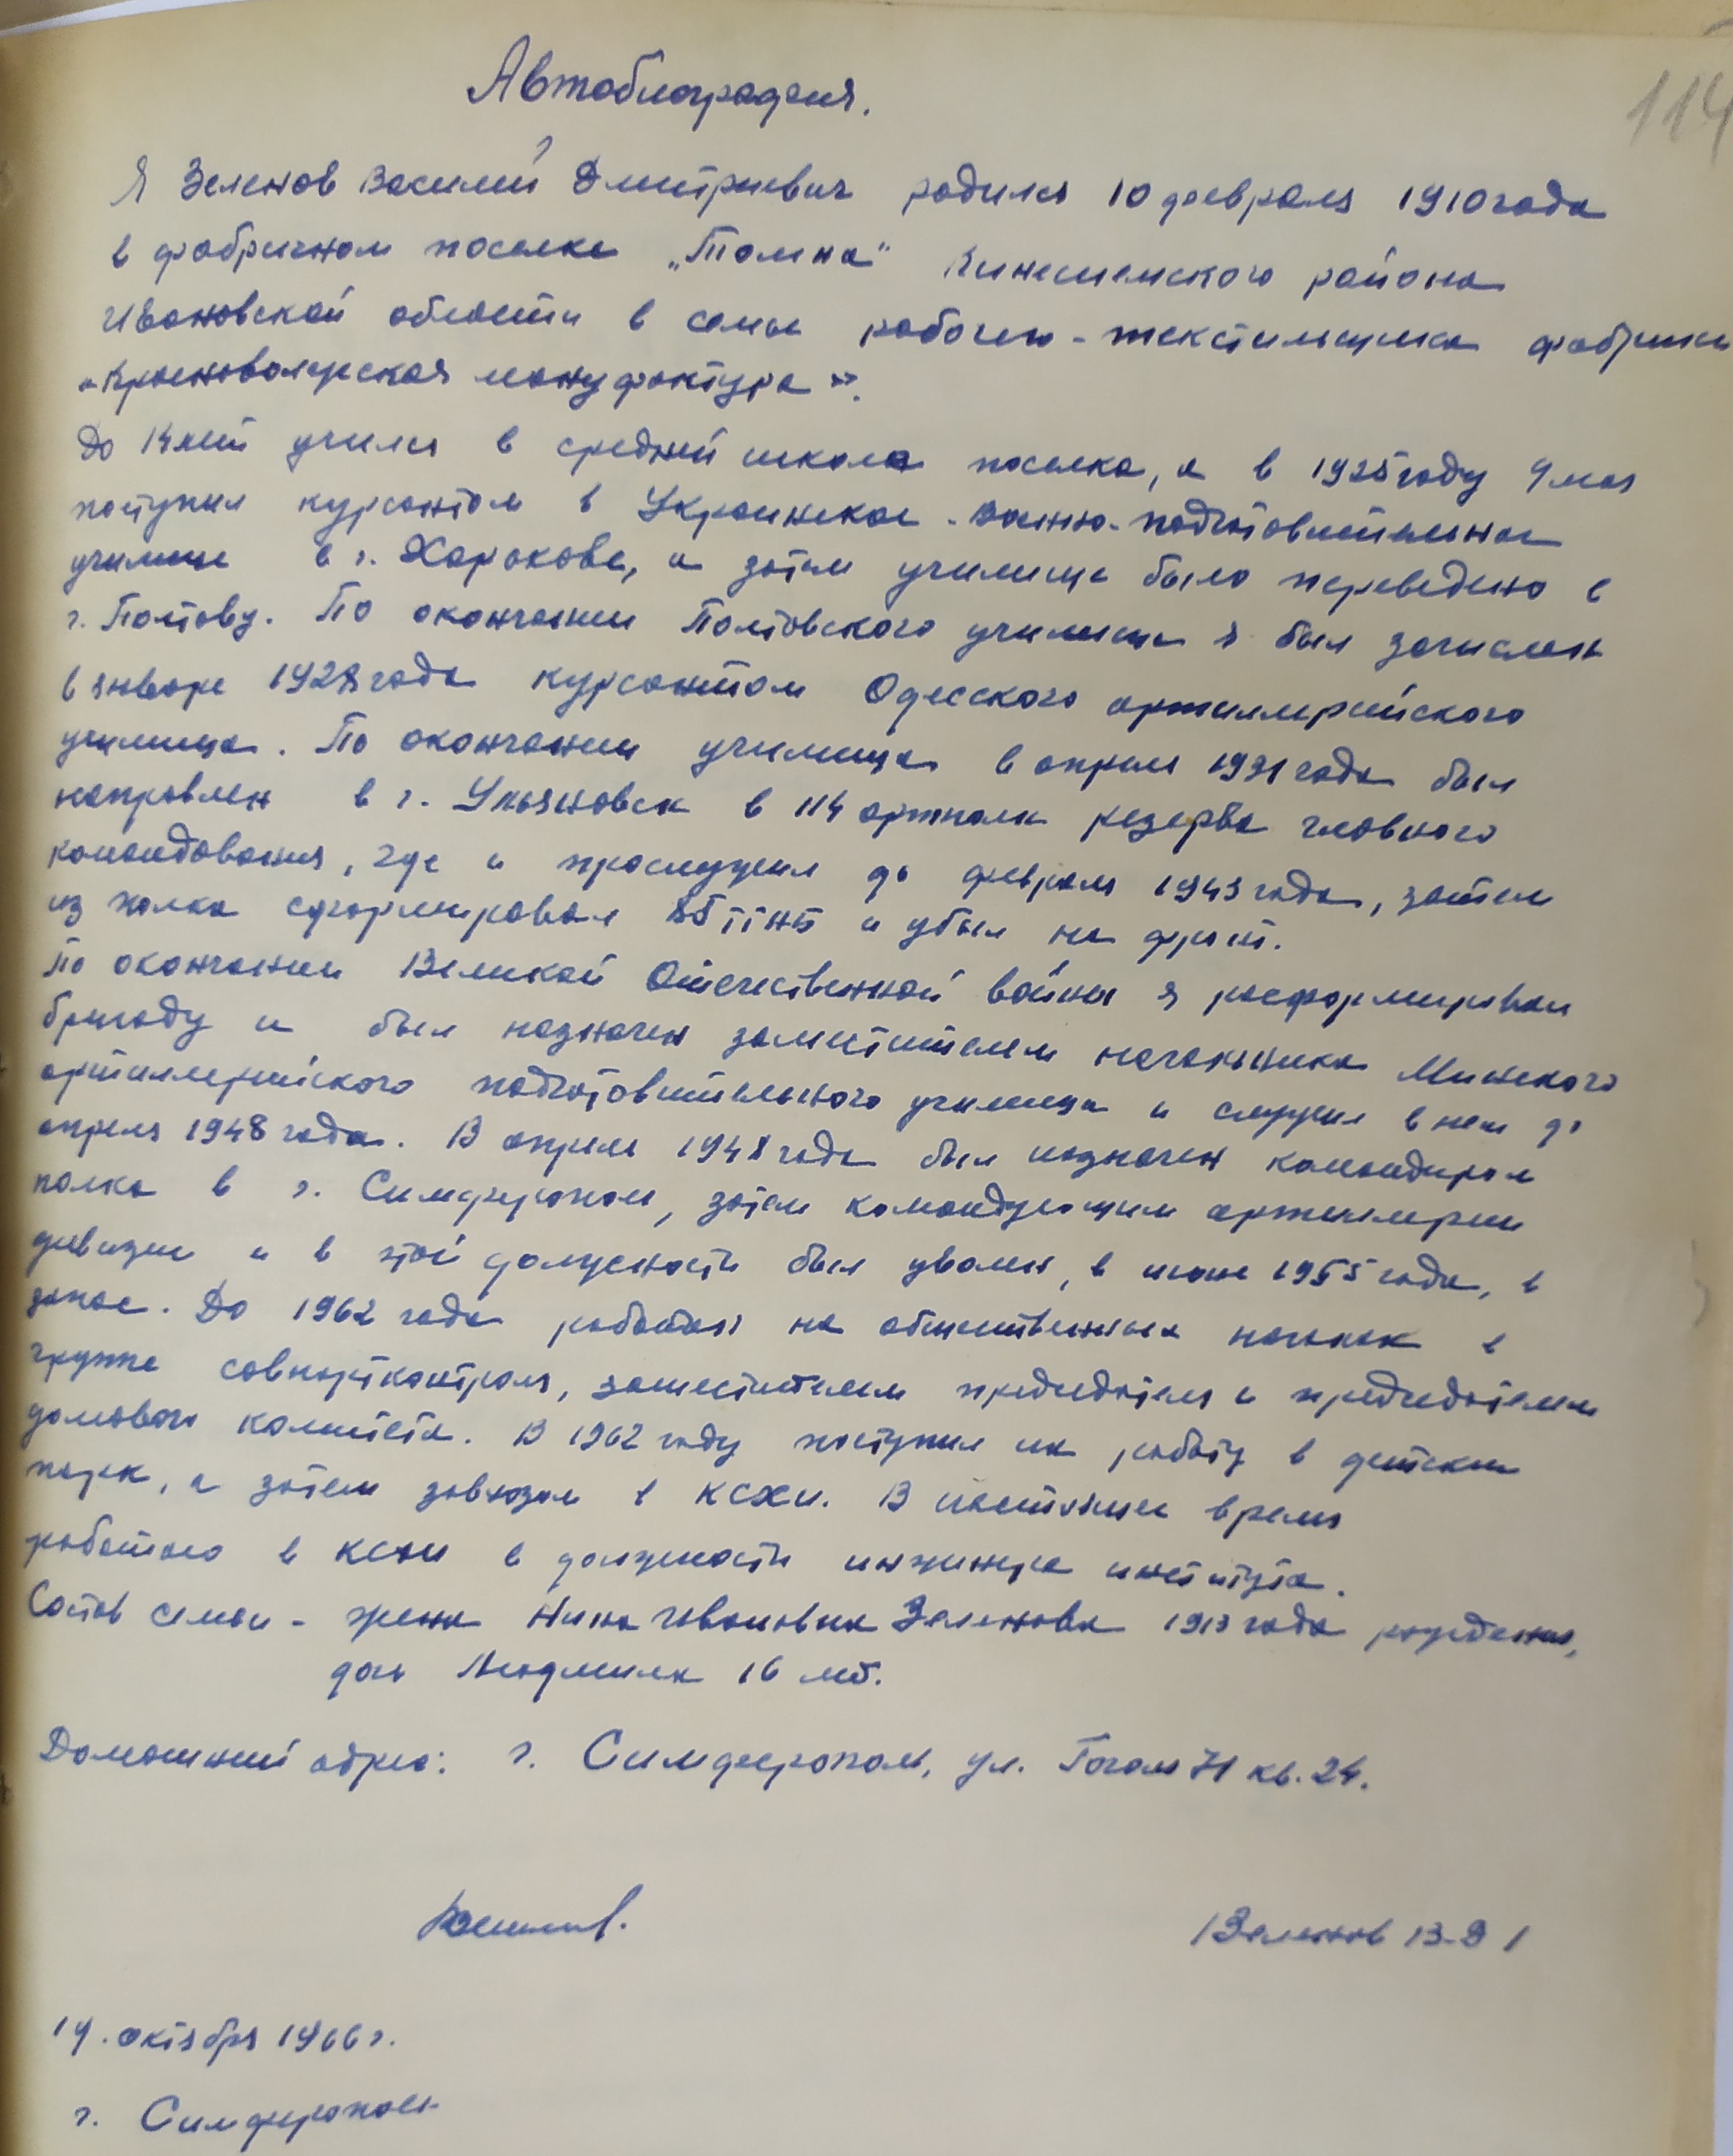 114
Автобиография.
Я Зеленов Василий Дмитриевич родился 10 февраля 1910 года
в фабричном поселке „Томна" Кинешемского района
Ивановской области в семье рабочего-текстильщика фабрики
«Красноволжская мануфактура».
До 14 лет учился в средней школе поселка, а в 1925 году 9 мая
поступил курсантом в Украинское-военно-подготовительное
училище в г. Харькове, а затем училище было переведено в
г. Полтову. По окончании Полтовского училища я был зачислен
в январе 1928 года курсантом Одесского артиллерийского
училища. По окончании училища в апреле 1931 года был
направлен в г. Ульяновск в 114 артполк резерва главного
командования, где и прослужил до февраля 1943 года, затем
из полка сформировал и убыл на фронт.
По окончании Великой Отечественной войны я расформировал
бригаду и был назначен заместителем начальника Минского
артиллерийского подготовительного училища и служил в нем до
апреля 1948 года. В апреле 1948 года был назначен командиром
полка в г. Симферополе, затем командующим артиллерии
дивизии и в этой должности был уволен, в июне 1955 года, в
запас. До 1962 года работал на общественных началах в
группе совпартконтроля, заместителем председателя и председателем
домового комитета. В 1962 году поступил на работу в детском
парк, а затем завхозом в КСХИ. В настоящее время
работаю в КСХИ в должности инженера института.
Состав семьи - жена Нина Ивановна Зеленова 1913 года рождения,
дочь Людмила 16 лет.
Домашний адрес: г. Симферополь, ул. Гоголя 71 кв. 24.
/Зеленов В.Д/
19. октября 1966 г.
г. Симферополь